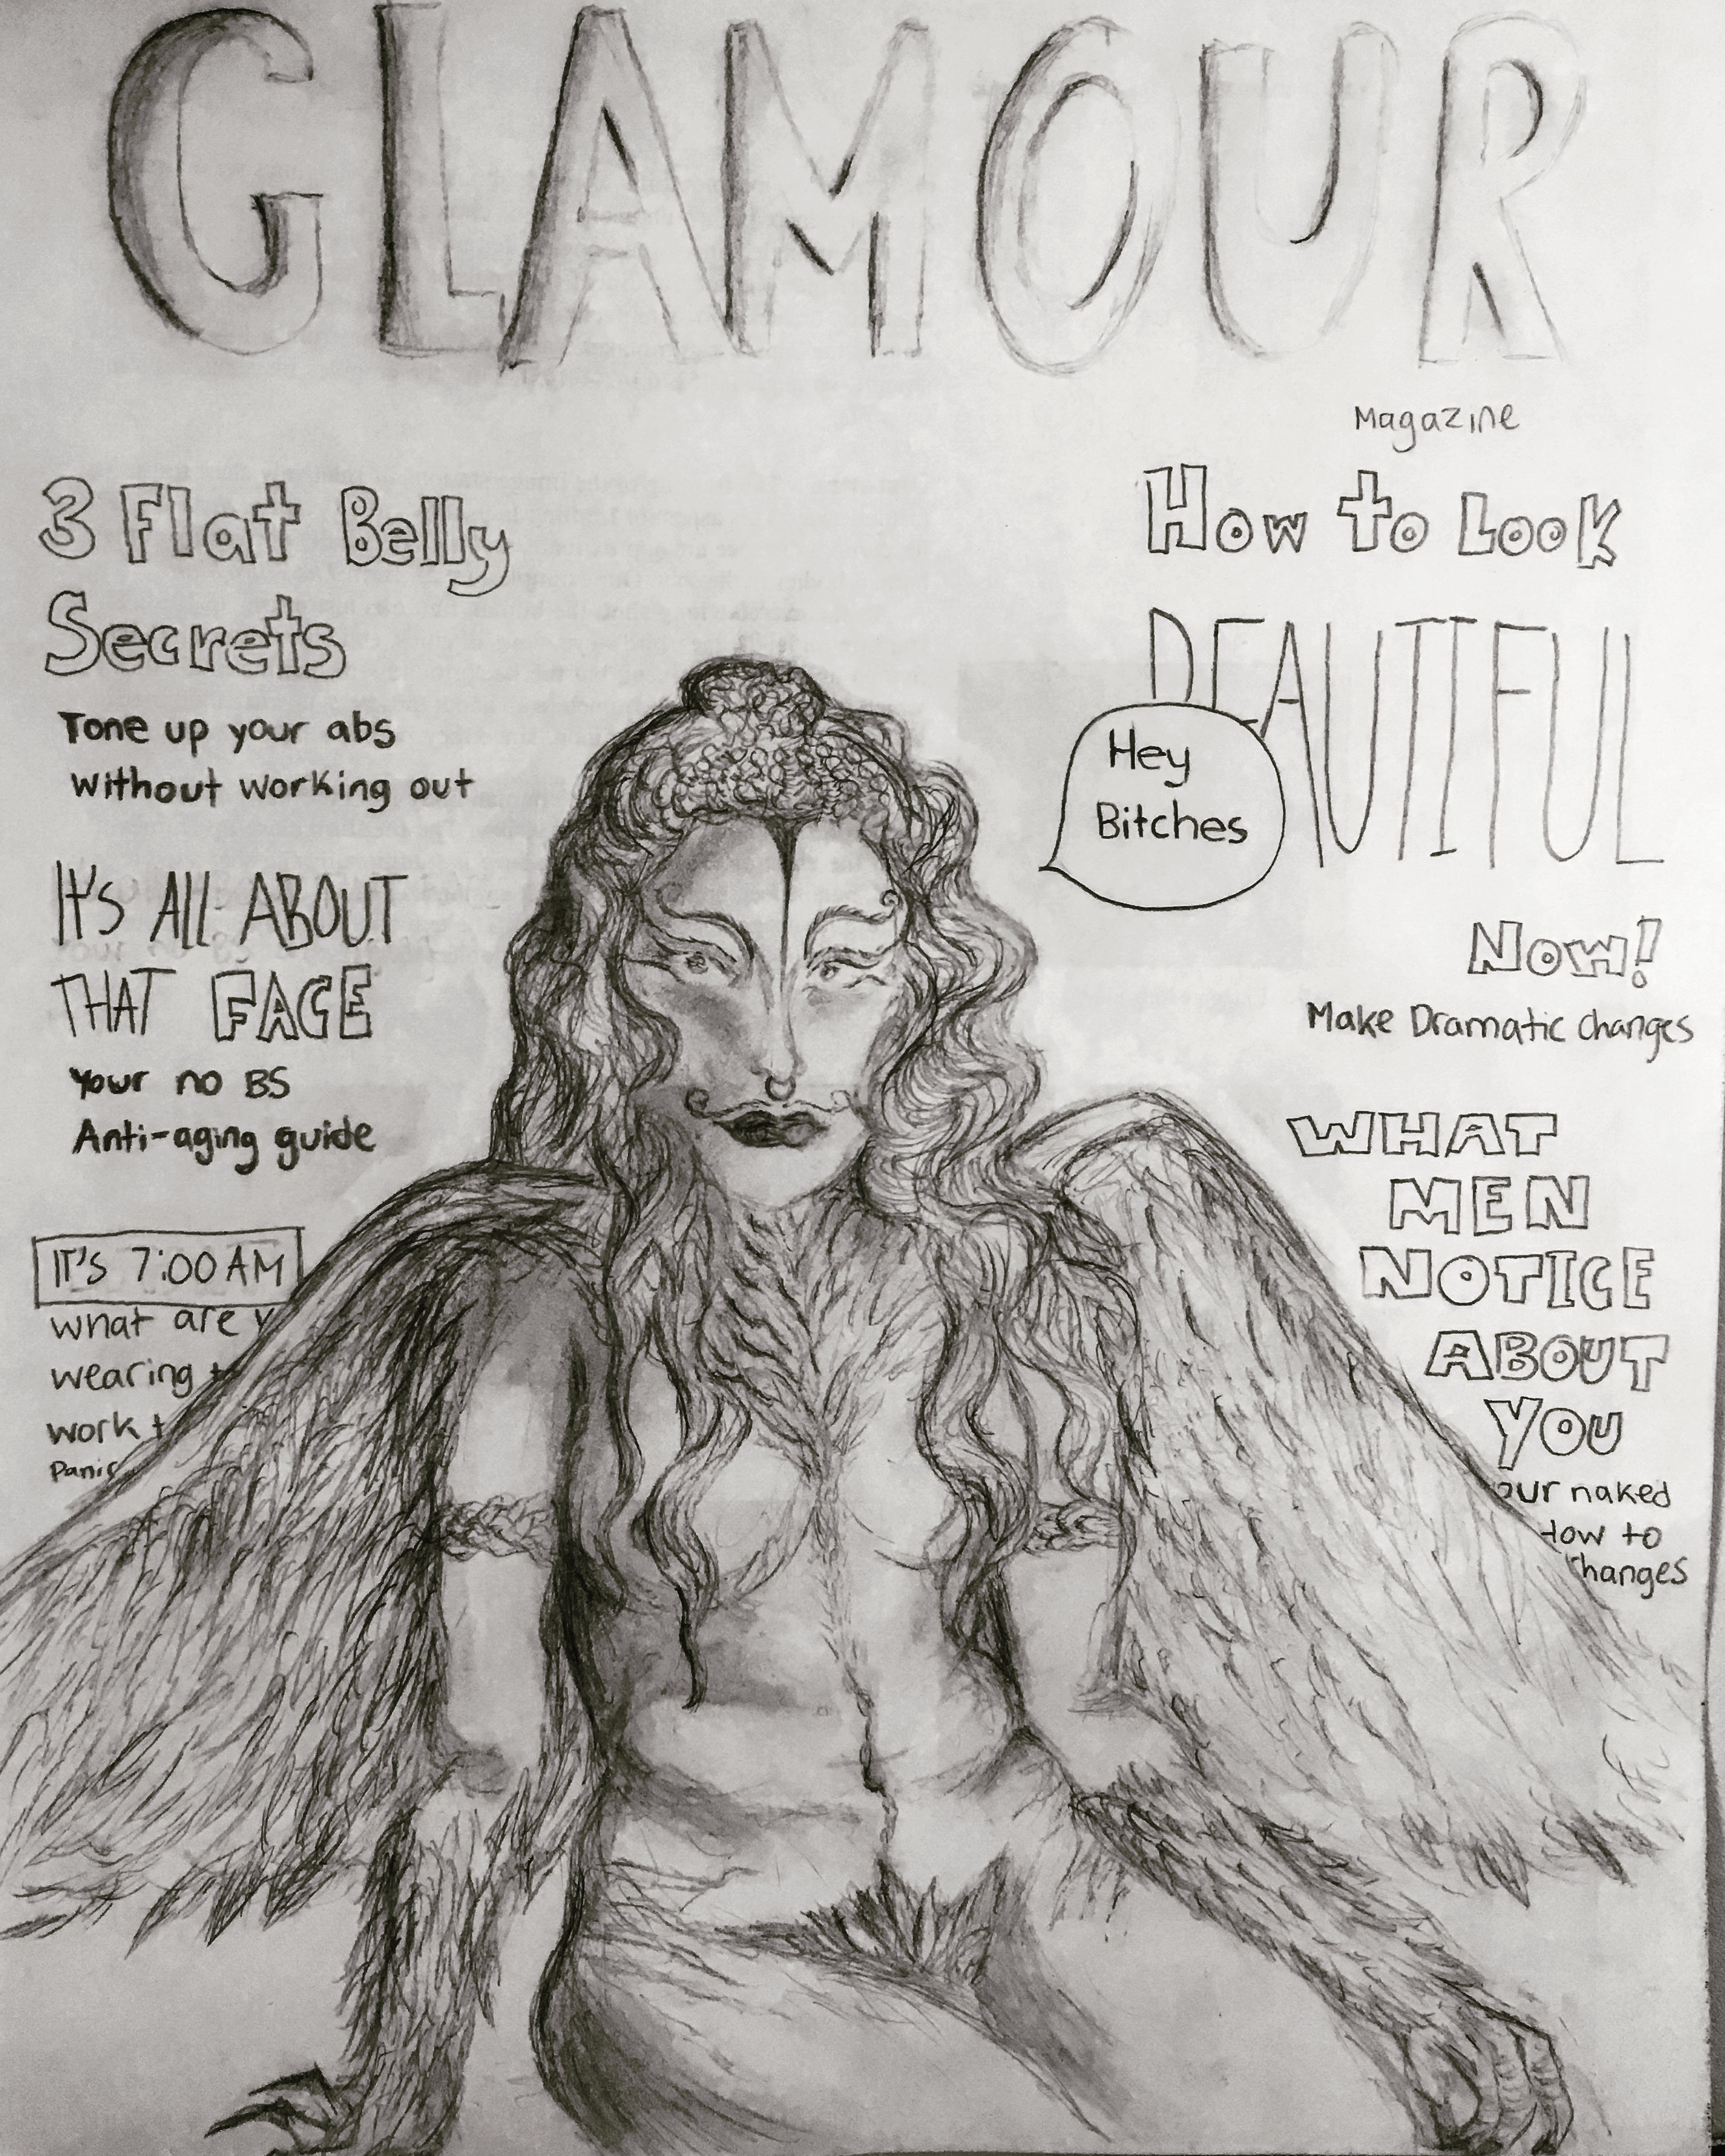 GLAMOUR
Magazine
3 Flat Belly
Secrets
Tone up your abs
without working out
IT'S ALL ABOUT
THAT FACE
Your no BS
Anti-aging guide
IT'S 7:00 AM
what are y
wearing t
work t
Panic
How to Look
BEAUTIFUL
Hey
Bitches
Now!
Make Dramatic changes
WHAT
MEN
NOTICE
ABOUT
YOU
our naked
How to
changes